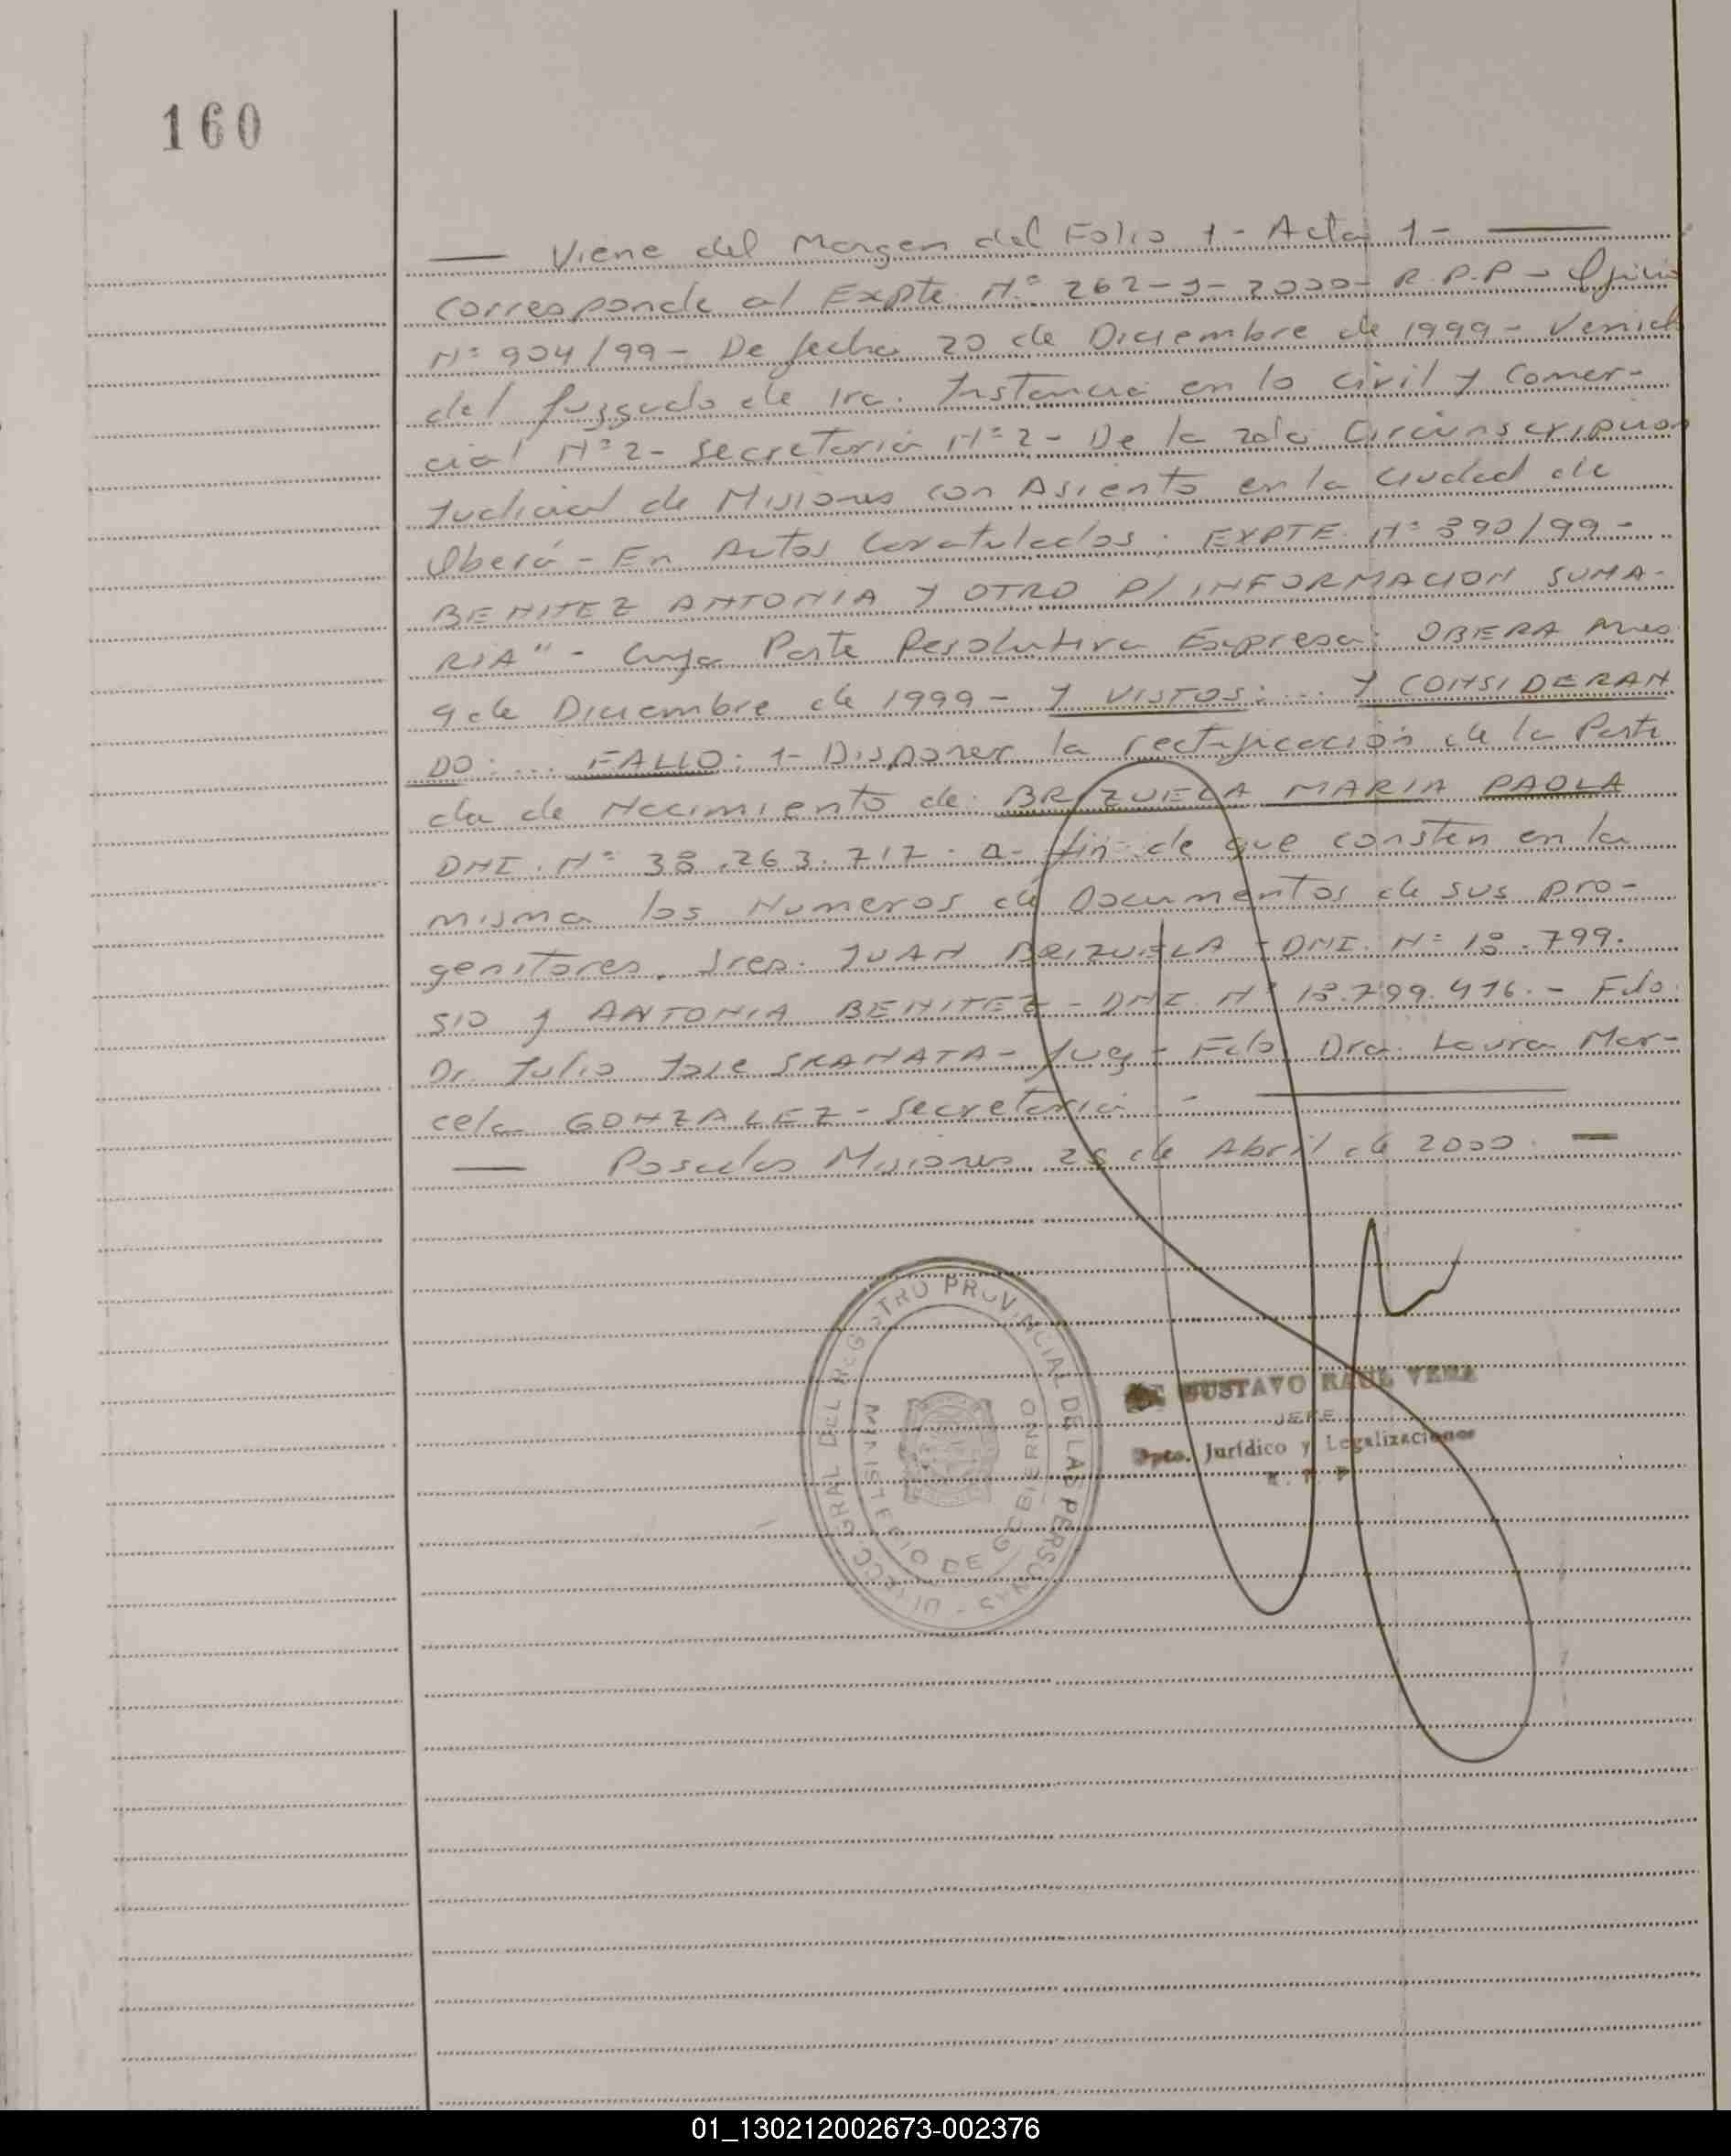 160
Viene del Margen del Folio 1 - Acta 1 -
corresponde al Expte. N° 262-9-2000 - R.P.P - Oficio
N° 904/99 - De fecha 20 de Diciembre de 1999 - Venido
del Juzgado de 1ra. Instancia en lo Civil y Comer-
cial N° 2 - Secretaria N° 2 - De la 2da Circunscripcion
Judicial de Misiones con Asiento en la Ciudad de
Oberá - En Autos Caratulados: EXPTE. N° 390/99 -
BENITEZ ANTONIA Y OTRO P/ INFORMACION SUMA-
RIA" - Cuya Parte Resolutiva Expresa: OBERA Mnes
9 de Diciembre de 1999 - Y VISTOS: ... Y CONSIDERAN
DO: ... FALLO: 1- Disponer la rectificación de la Parti
da de Nacimiento de BRIZUELA MARIA PAOLA
DNI. N° 38.263.717. a fin de que consten en la
misma los Numeros de Documentos de sus pro-
genitores, Sres. JUAN BRIZUELA - DNI. N° 18.799.
510 y ANTONIA BENITEZ - DNI. N° 18.799.476. - Fdo.
Dr. Julio Jose SKANATA - Juez - Fdo Dra. Laura Mar-
cela GONZALEZ - Secretaria -
Posadas Misiones 28 de Abril de 2000.
DIRECC. GRAL. DEL REGISTRO PROVINCIAL DE LAS PERSONAS -
MINISTERIO DE GOBIERNO
GUSTAVO RAUL VERA
JEFE
Dpto. Jurídico y Legalizaciones
R. P. P.
01_130212002673-002376